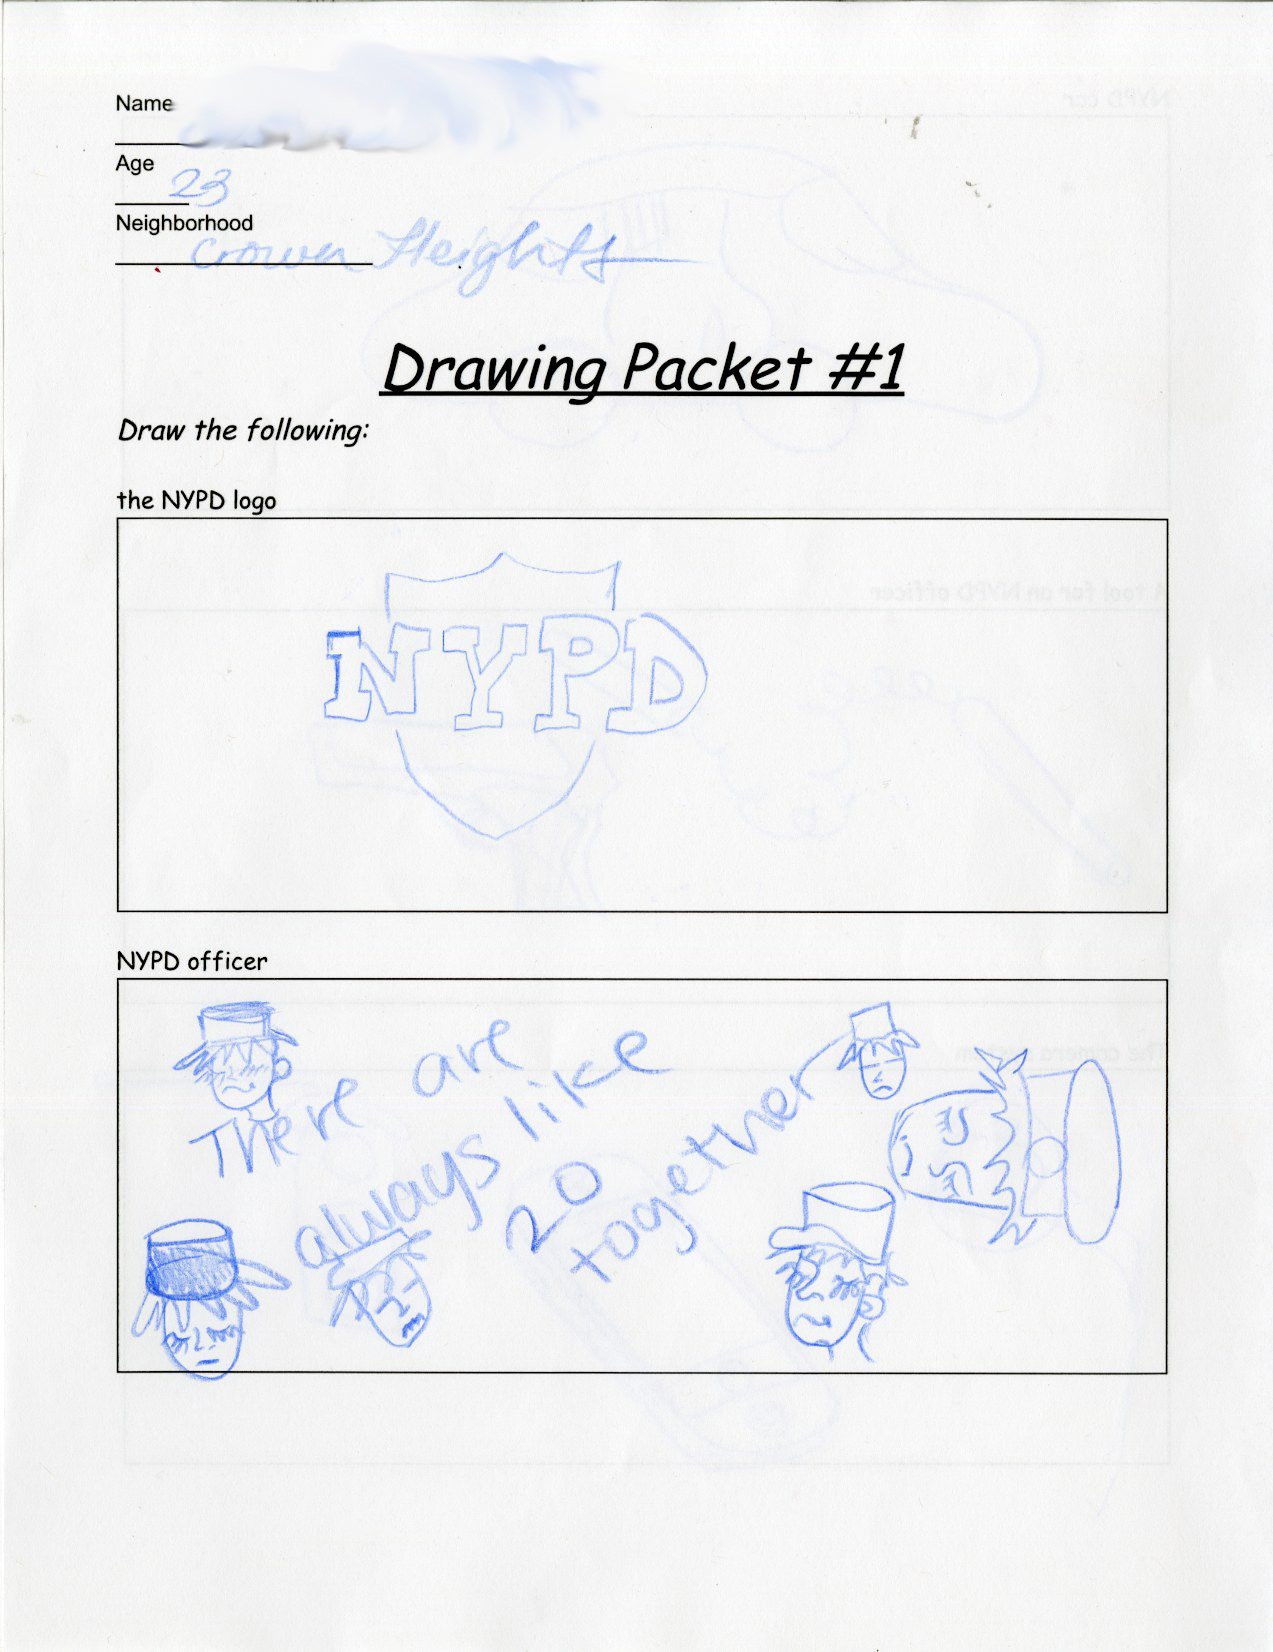 Name
Age
23
Neighborhood
Crown Heights
Drawing Packet #1
Draw the following:
the NYPD logo
NYPD
NYPD officer
There are
always like
20
together
NYPD car
A tool for an NYPD officer